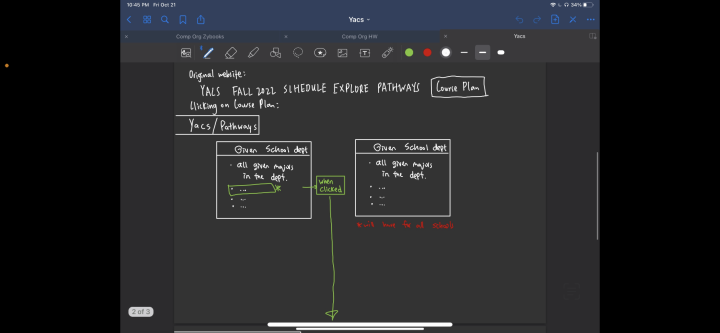 10:45 PM Fri Oct 21
34%
Yacs
Comp Org Zybooks
Comp Org HW
Yacs
Original website:
YACS FALL 2022 SCHEDULE EXPLORE PATHWAYS Course Plan
Clicking on Course Plan:
Yacs/Pathways
Given School dept
• all given majors
in the dept.
• ...
• ...
• ...
when
clicked
Given School dept
• all given majors
in the dept.
• ...
• ...
• ...
for all schools
2 of 3